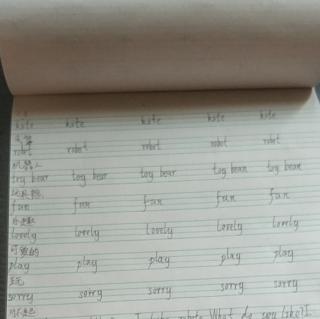 kite kite kite kite kite
风筝
robot robot robot robot robot
机器人
toy bear toy bear toy bear toy bear toy bear
玩具熊
fun fun fun fun fun
lovely lovely lovely lovely lovely
可爱的
play play play play play
玩
sorry sorry sorry sorry sorry
对不起
What do you like? I